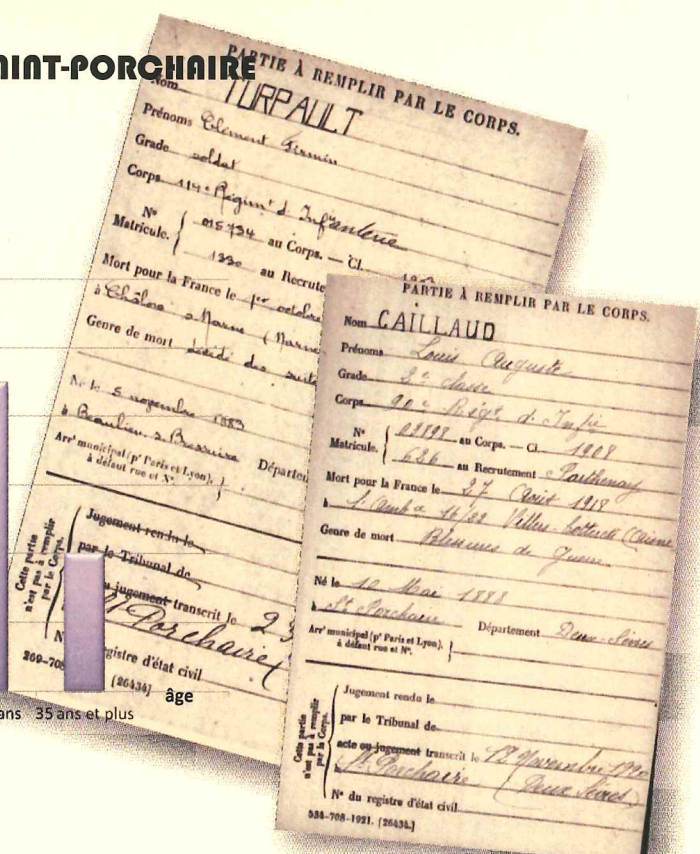 AINT-PORCHAIRE
PARTIE À REMPLIR PAR LE CORPS.
Nom TURPAULT
Prénoms Clément Firmin
Grade soldat
Corps 114e Régimt d'Infanterie
No
Matricule. 015734 au Corps. — Cl.
1330 au Recrute
Mort pour la France le 1er octobre
à Châlons s Marne (Marne
Genre de mort décédé des suite
Né le 5 novembre 1883
à Beaulieu s Bressuire Départem
Arrt municipal (pr Paris et Lyon),
à défaut rue et No.
Cette partie
n'est pas à remplir
par le Corps.
Jugement rendu le
par le Tribunal de
ou jugement transcrit le 23
St Porchaire (
N registre d'état civil
269-708 [26434]
PARTIE À REMPLIR PAR LE CORPS.
Nom CAILLAUD
Prénoms Louis Auguste
Grade 2e classe
Corps 90e Régt d'Infie
No
Matricule. 02898 au Corps. — Cl. 1908
626 au Recrutement Parthenay
Mort pour la France le 27 Août 1918
à l'Amb 16/22 Villers Cotterets (Aisne
Genre de mort Blessures de Guerre
Né le 10 Mai 1888
à St Porchaire Département Deux-Sèvres
Arrt municipal (pr Paris et Lyon),
à défaut rue et No.
Cette partie
n'est pas à remplir
par le Corps.
Jugement rendu le
par le Tribunal de
acte ou jugement transcrit le 12 Novembre 1920
St Porchaire (Deux Sèvres)
No du registre d'état civil
534-708-1921. [26434.]
âge
ans 35 ans et plus